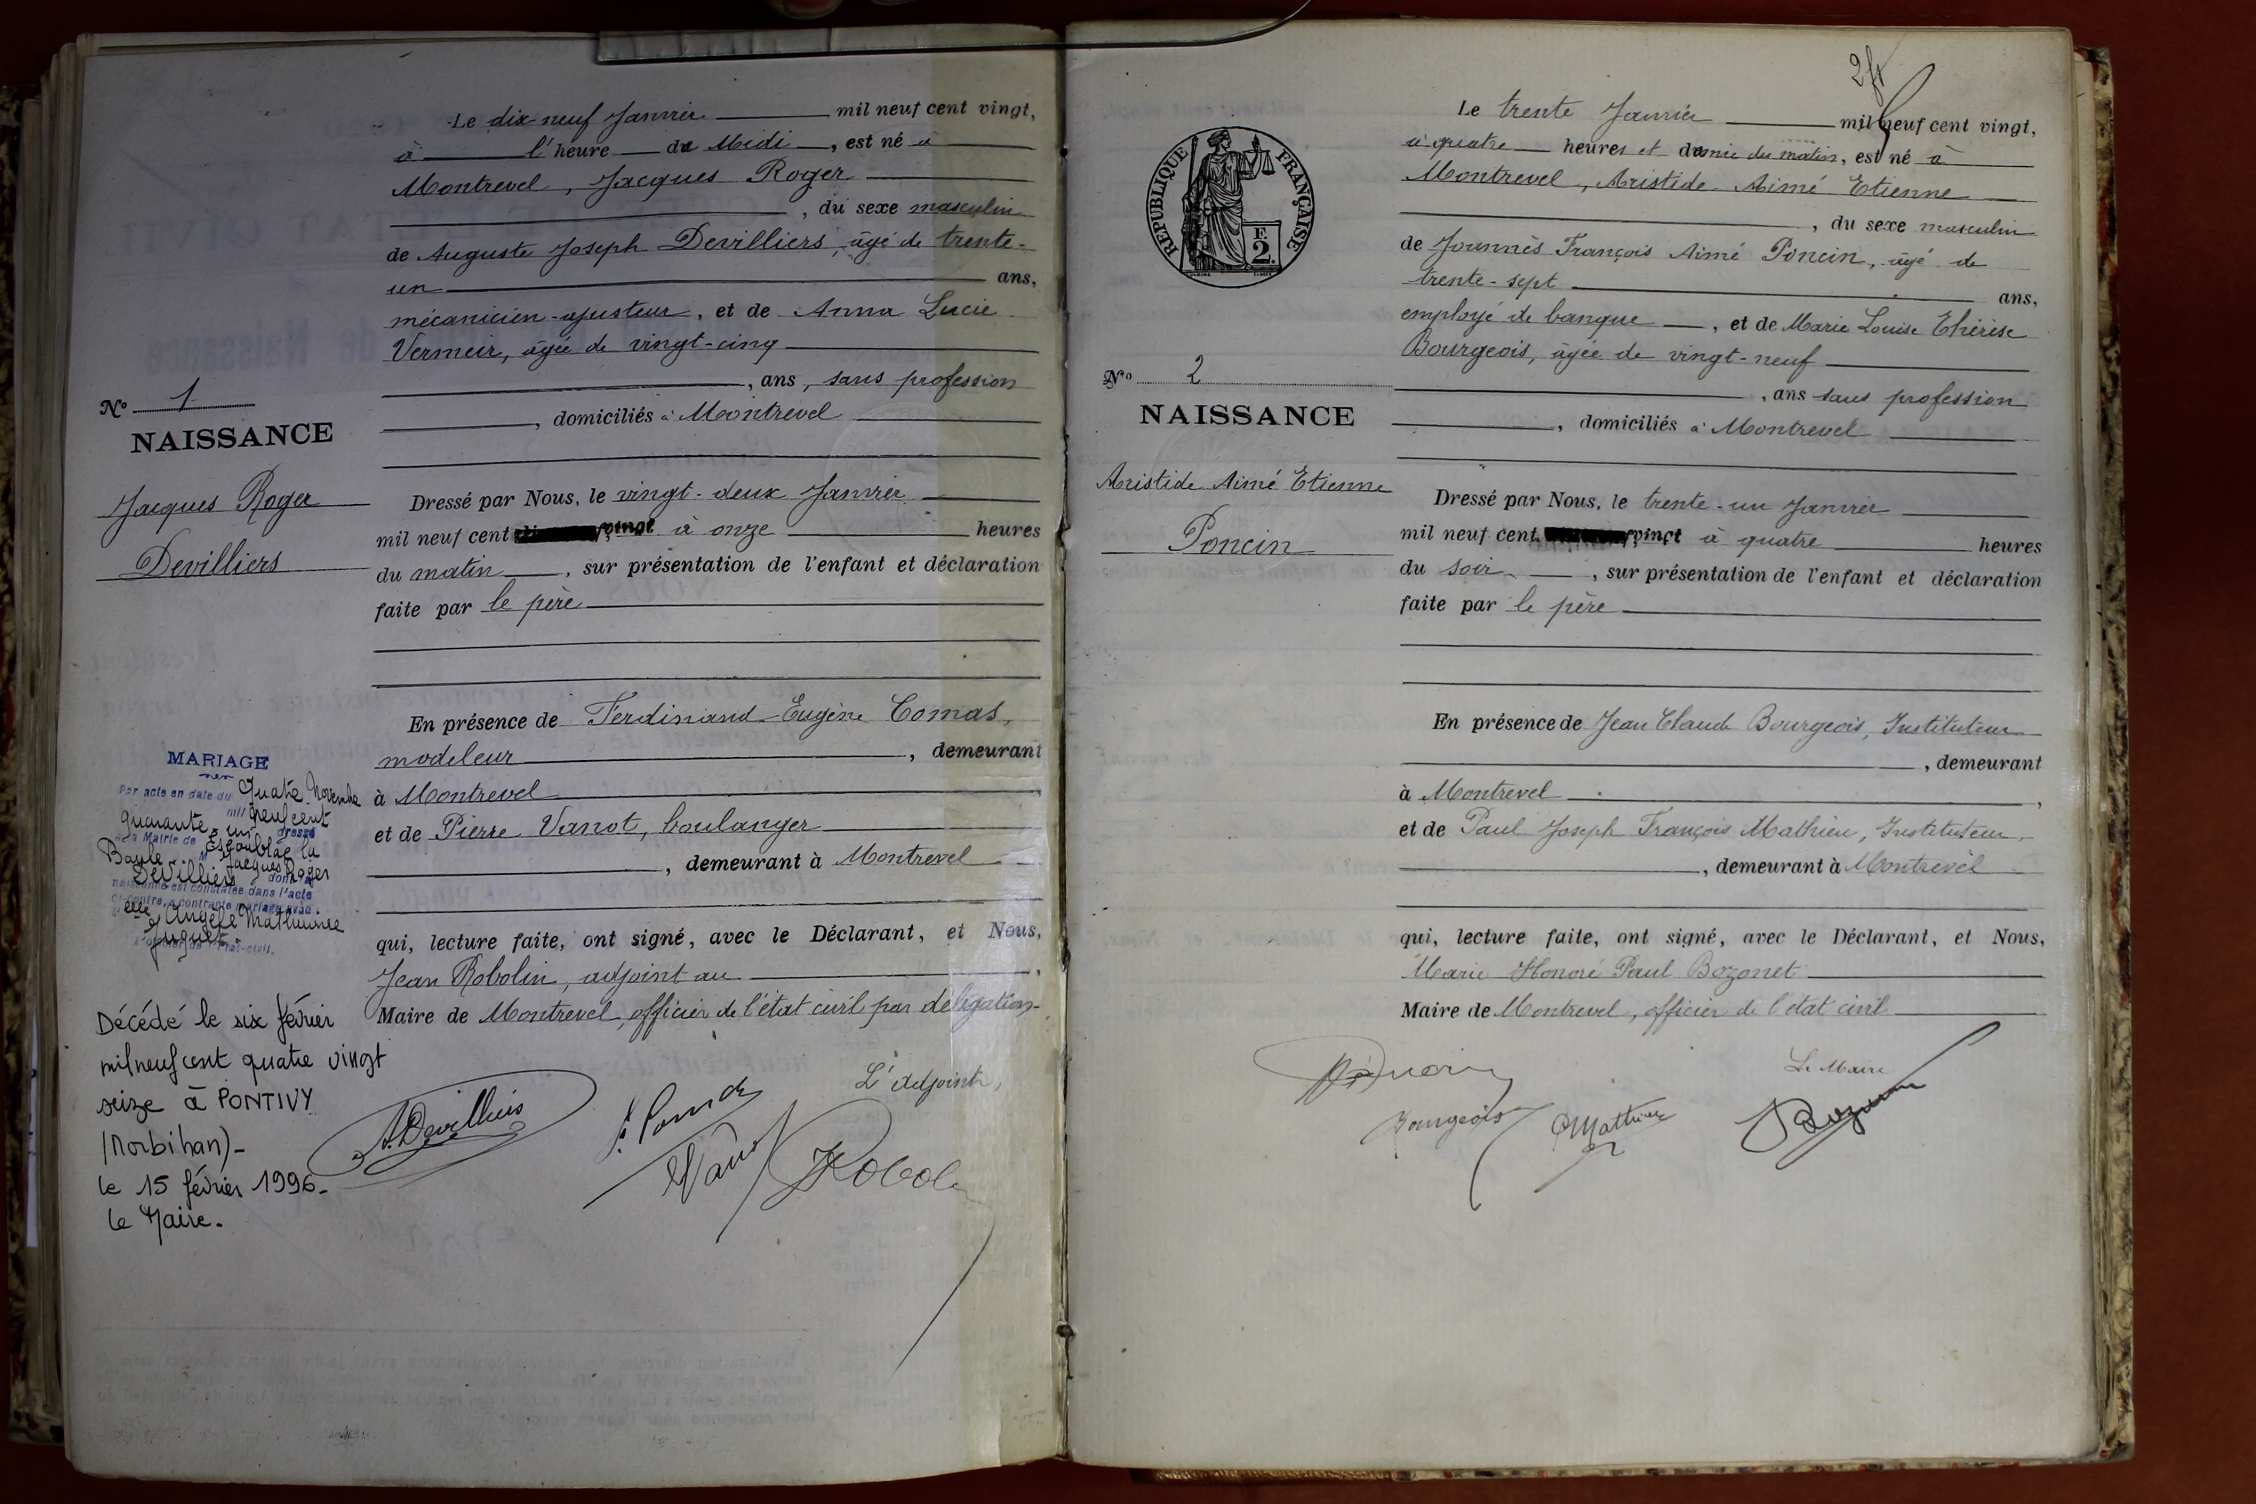 Le dix-neuf Janvier mil neuf cent vingt,
à l'heure de Midi, est né à
Montrevel, Jacques Roger
, du sexe masculin
de Auguste Joseph Devilliers, âgé de trente-
un ans,
mécanicien-ajusteur, et de Anna Lucie
Vermeir, âgée de vingt-cinq
, ans, sans profession
, domiciliés à Montrevel
N° 1
NAISSANCE
Jacques Roger
Devilliers
Dressé par Nous, le vingt-deux Janvier
mil neuf cent vingt à onze heures
du matin, sur présentation de l'enfant et déclaration
faite par le père
En présence de Ferdinand Eugène Comas,
modeleur, demeurant
à Montrevel
et de Pierre Vanot, boulanger
, demeurant à Montrevel
qui, lecture faite, ont signé, avec le Déclarant, et Nous,
Jean Robolin, adjoint au
Maire de Montrevel, officier de l'état civil par délégation
L'adjoint,
A. Devilliers
MARIAGE
Par acte en date du Quatre Novembre
mil neuf cent
quarante-un dressé
à la Mairie de Escoublac la
Baule M Jacques Roger
Devilliers dont la
naissance est constatée dans l'acte
ci-contre, a contracté mariage avec
elle Angèle Mathurine
Juguet.
L'officier de l'état-civil.
Décédé le six février
mil neuf cent quatre vingt
seize à PONTIVY
(Morbihan)-
le 15 février 1996-
le Maire.
2 f
REPUBLIQUE FRANÇAISE
F.
2.
Le trente Janvier mil neuf cent vingt,
à quatre heures et demie du matin, est né à
Montrevel, Aristide Aimé Etienne
, du sexe masculin
de Joannès François Aimé Poncin, âgé de
trente-sept ans,
employé de banque, et de Marie Louise Thérèse
Bourgeois, âgée de vingt-neuf
, ans sans profession
, domiciliés à Montrevel
N° 2
NAISSANCE
Aristide Aimé Etienne
Poncin
Dressé par Nous, le trente-un Janvier
mil neuf cent vingt à quatre heures
du soir, sur présentation de l'enfant et déclaration
faite par le père
En présence de Jean Claude Bourgeois, Instituteur
, demeurant
à Montrevel,
et de Paul Joseph François Mathieu, Instituteur,
, demeurant à Montrevel
qui, lecture faite, ont signé, avec le Déclarant, et Nous,
Marie Honoré Paul Bozonet
Maire de Montrevel, officier de l'état civil
Le Maire
Bourgeois
Mathieu